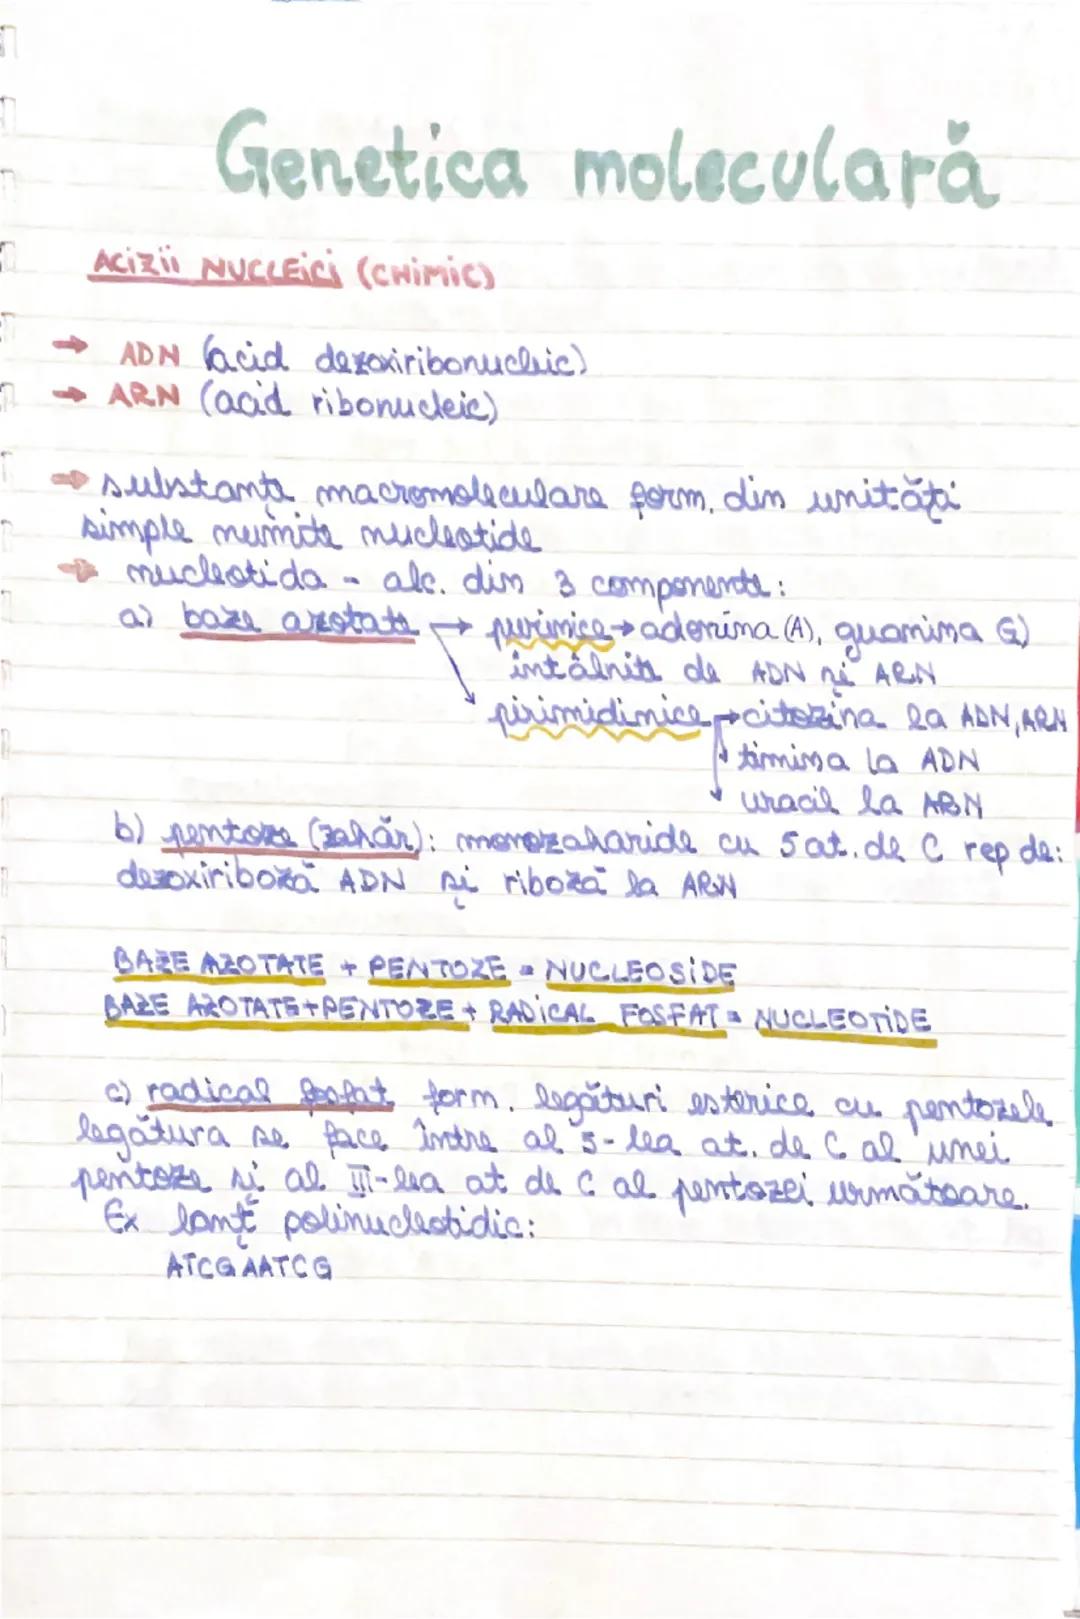 Genetica moleculară
ACIZII NUCLEICI (CHIMIC)
→ ADN (acid dezoxiribonucleic)
→ ARN (acid ribonucleic)
→ substanțe macromoleculare form. din unități
simple numite nucleotide
→ nucleotida - alc. din 3 componente:
a) baze azotate → purinice → adenina (A), guanina G)
întâlnite de ADN și ARN
pirimidinice → citozina la ADN, ARN
timina la ADN
uracil la ARN
b) pentoze (zahăr): monozaharide cu 5 at. de C rep de:
dezoxiriboză ADN și riboză la ARN
BAZE AZOTATE + PENTOZE = NUCLEOSIDE
BAZE AZOTATE + PENTOZE + RADICAL FOSFAT = NUCLEOTIDE
c) radical fosfat form. legături esterice cu pentozele
legătura se face între al 5-lea at. de C al unei
pentoze și al III-lea at de C al pentozei următoare.
Ex lanț polinucleotidic:
ATCGAATCG